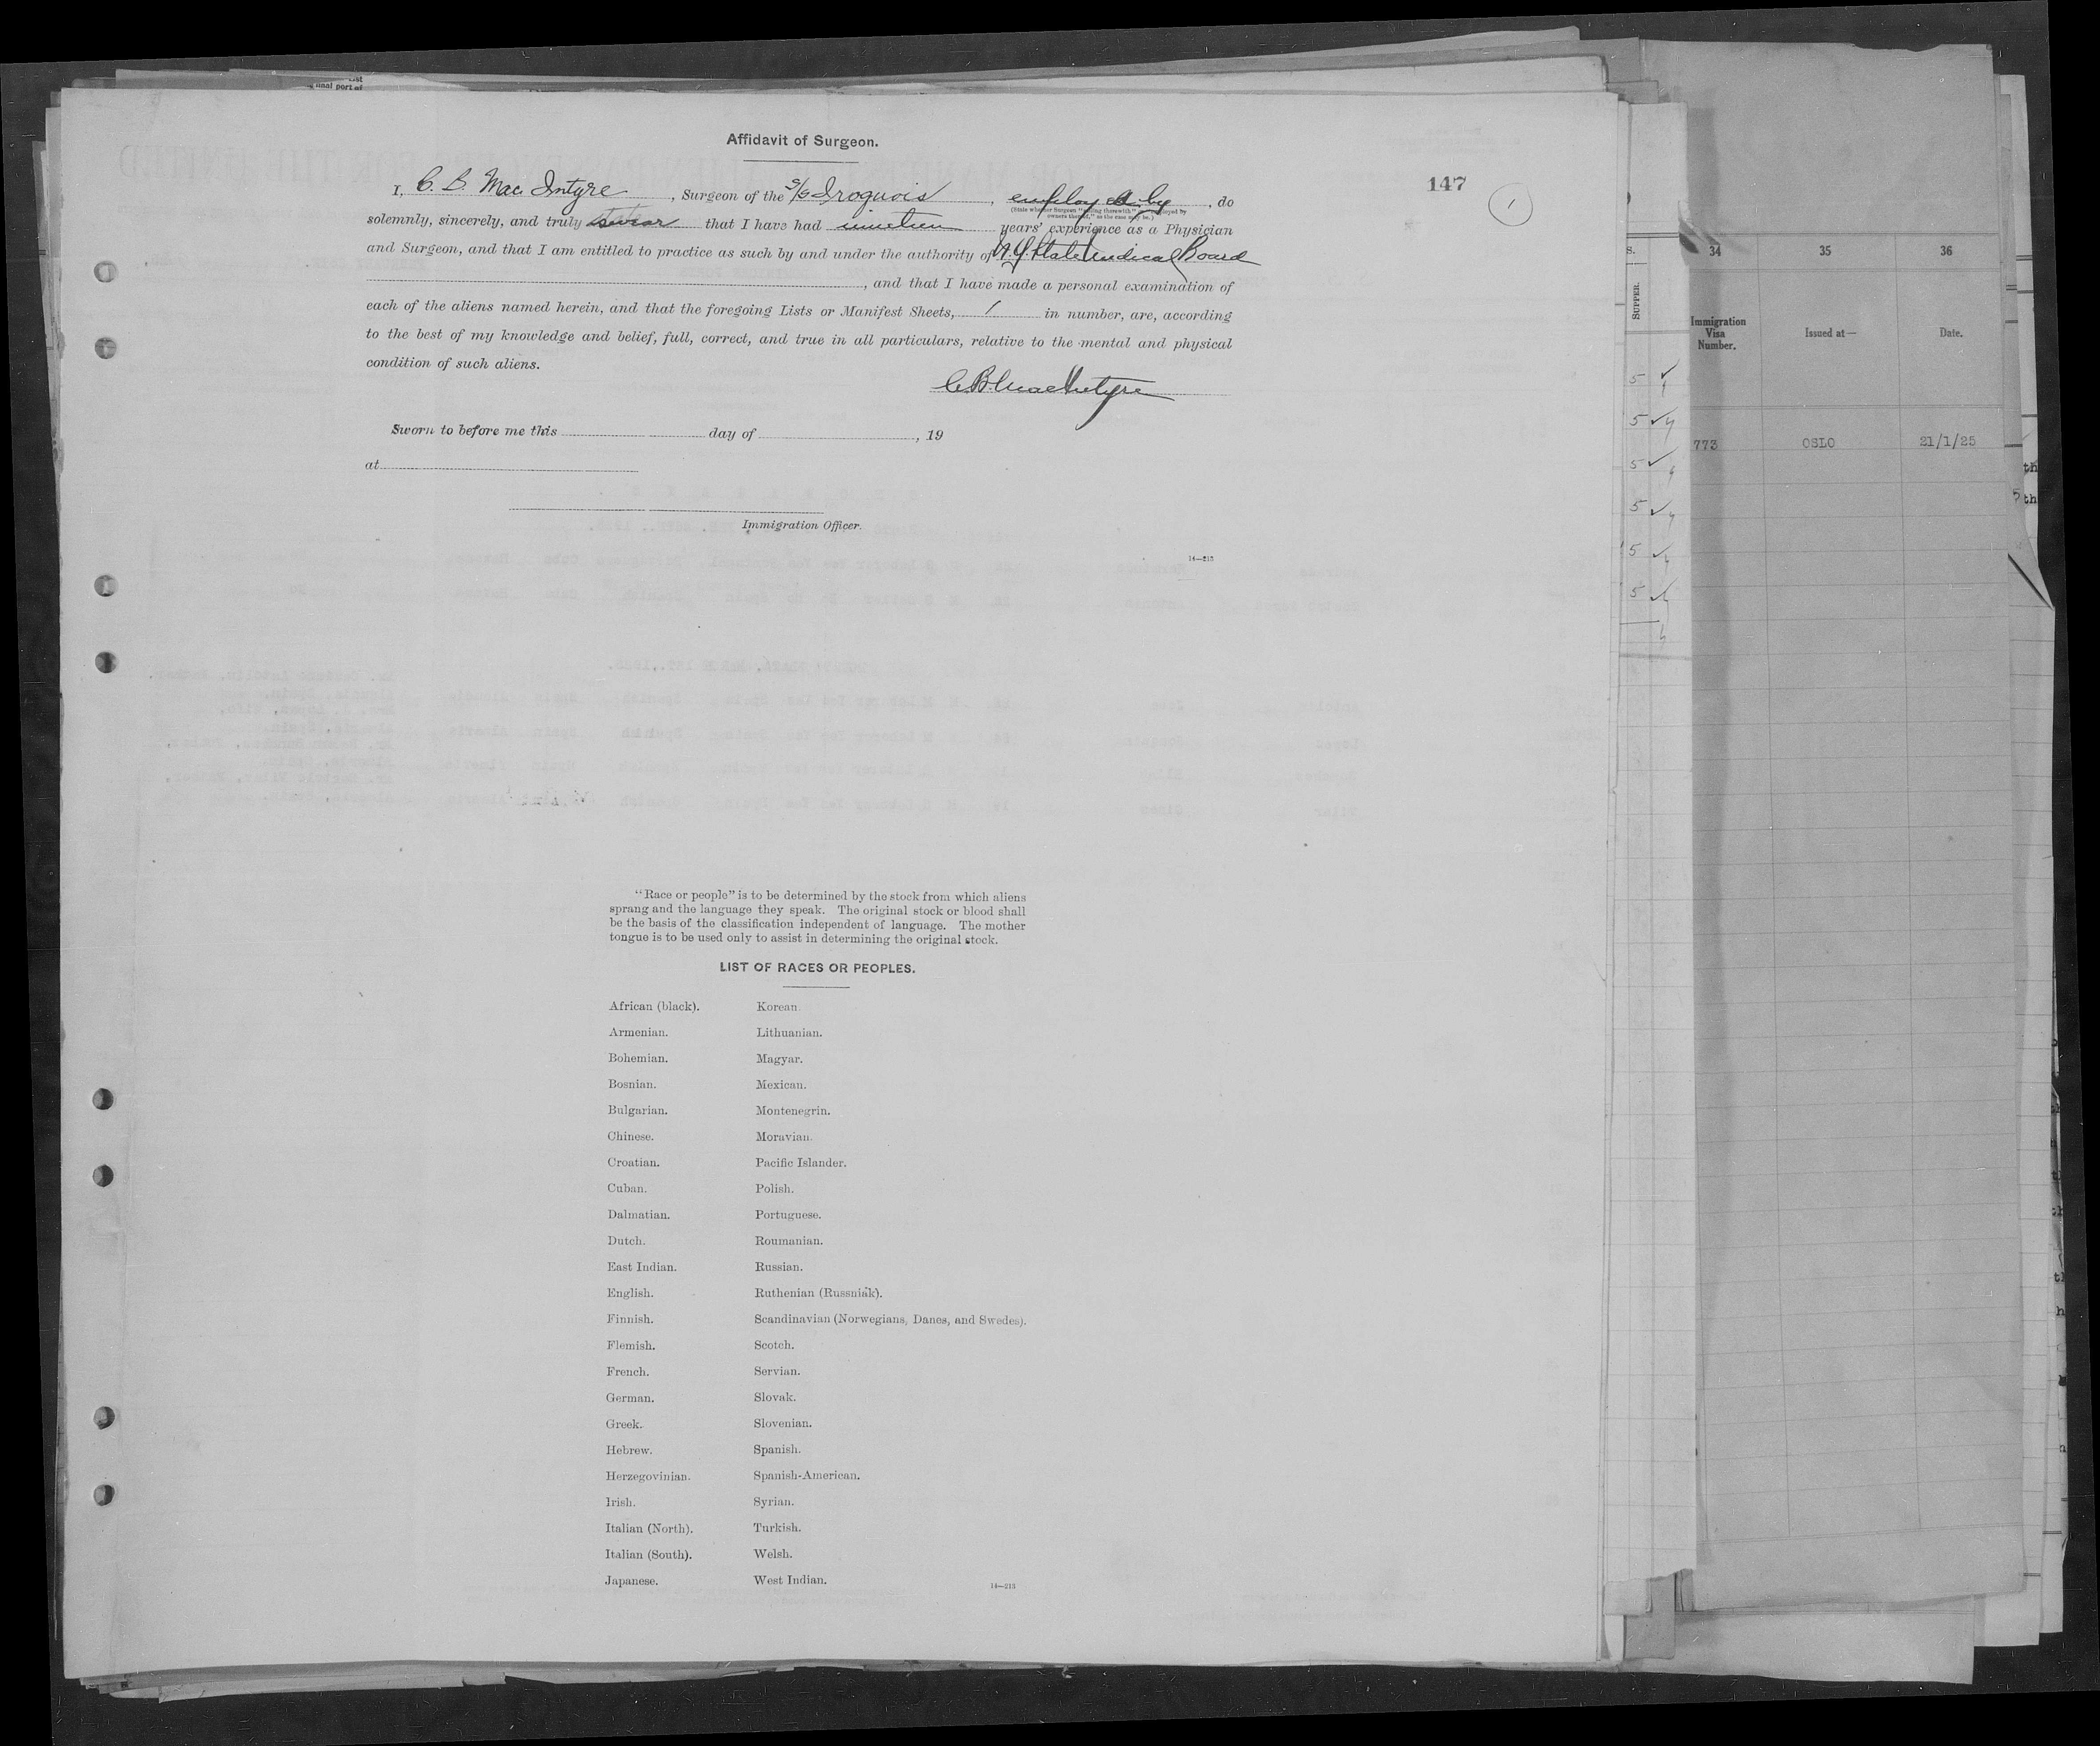 Affidavit of Surgeon.
147
1
I, C. B. Mac Intyre, Surgeon of the S/S Iroquois, employed by, do
(State whether Surgeon "sailing therewith" or "employed by owners thereof," as the case may be.)
solemnly, sincerely, and truly swear that I have had nineteen years' experience as a Physician
and Surgeon, and that I am entitled to practice as such by and under the authority of N.Y. State Medical Board
, and that I have made a personal examination of
each of the aliens named herein, and that the foregoing Lists or Manifest Sheets, 1 in number, are, according
to the best of my knowledge and belief, full, correct, and true in all particulars, relative to the mental and physical
condition of such aliens.
C. B. MacIntyre
Sworn to before me this day of , 19
at
Immigration Officer.
14—213
"Race or people" is to be determined by the stock from which aliens
sprang and the language they speak. The original stock or blood shall
be the basis of the classification independent of language. The mother
tongue is to be used only to assist in determining the original stock.
LIST OF RACES OR PEOPLES.
African (black). Korean.
Armenian. Lithuanian.
Bohemian. Magyar.
Bosnian. Mexican.
Bulgarian. Montenegrin.
Chinese. Moravian.
Croatian. Pacific Islander.
Cuban. Polish.
Dalmatian. Portuguese.
Dutch. Roumanian.
East Indian. Russian.
English. Ruthenian (Russniak).
Finnish. Scandinavian (Norwegians, Danes, and Swedes).
Flemish. Scotch.
French. Servian.
German. Slovak.
Greek. Slovenian.
Hebrew. Spanish.
Herzegovinian. Spanish-American.
Irish. Syrian.
Italian (North). Turkish.
Italian (South). Welsh.
Japanese. West Indian.
14—213
S.
SUPPER.
5
5
5
5
5
5
34 35 36
Immigration
Visa
Number.
Issued at—
Date.
773 OSLO 21/1/25